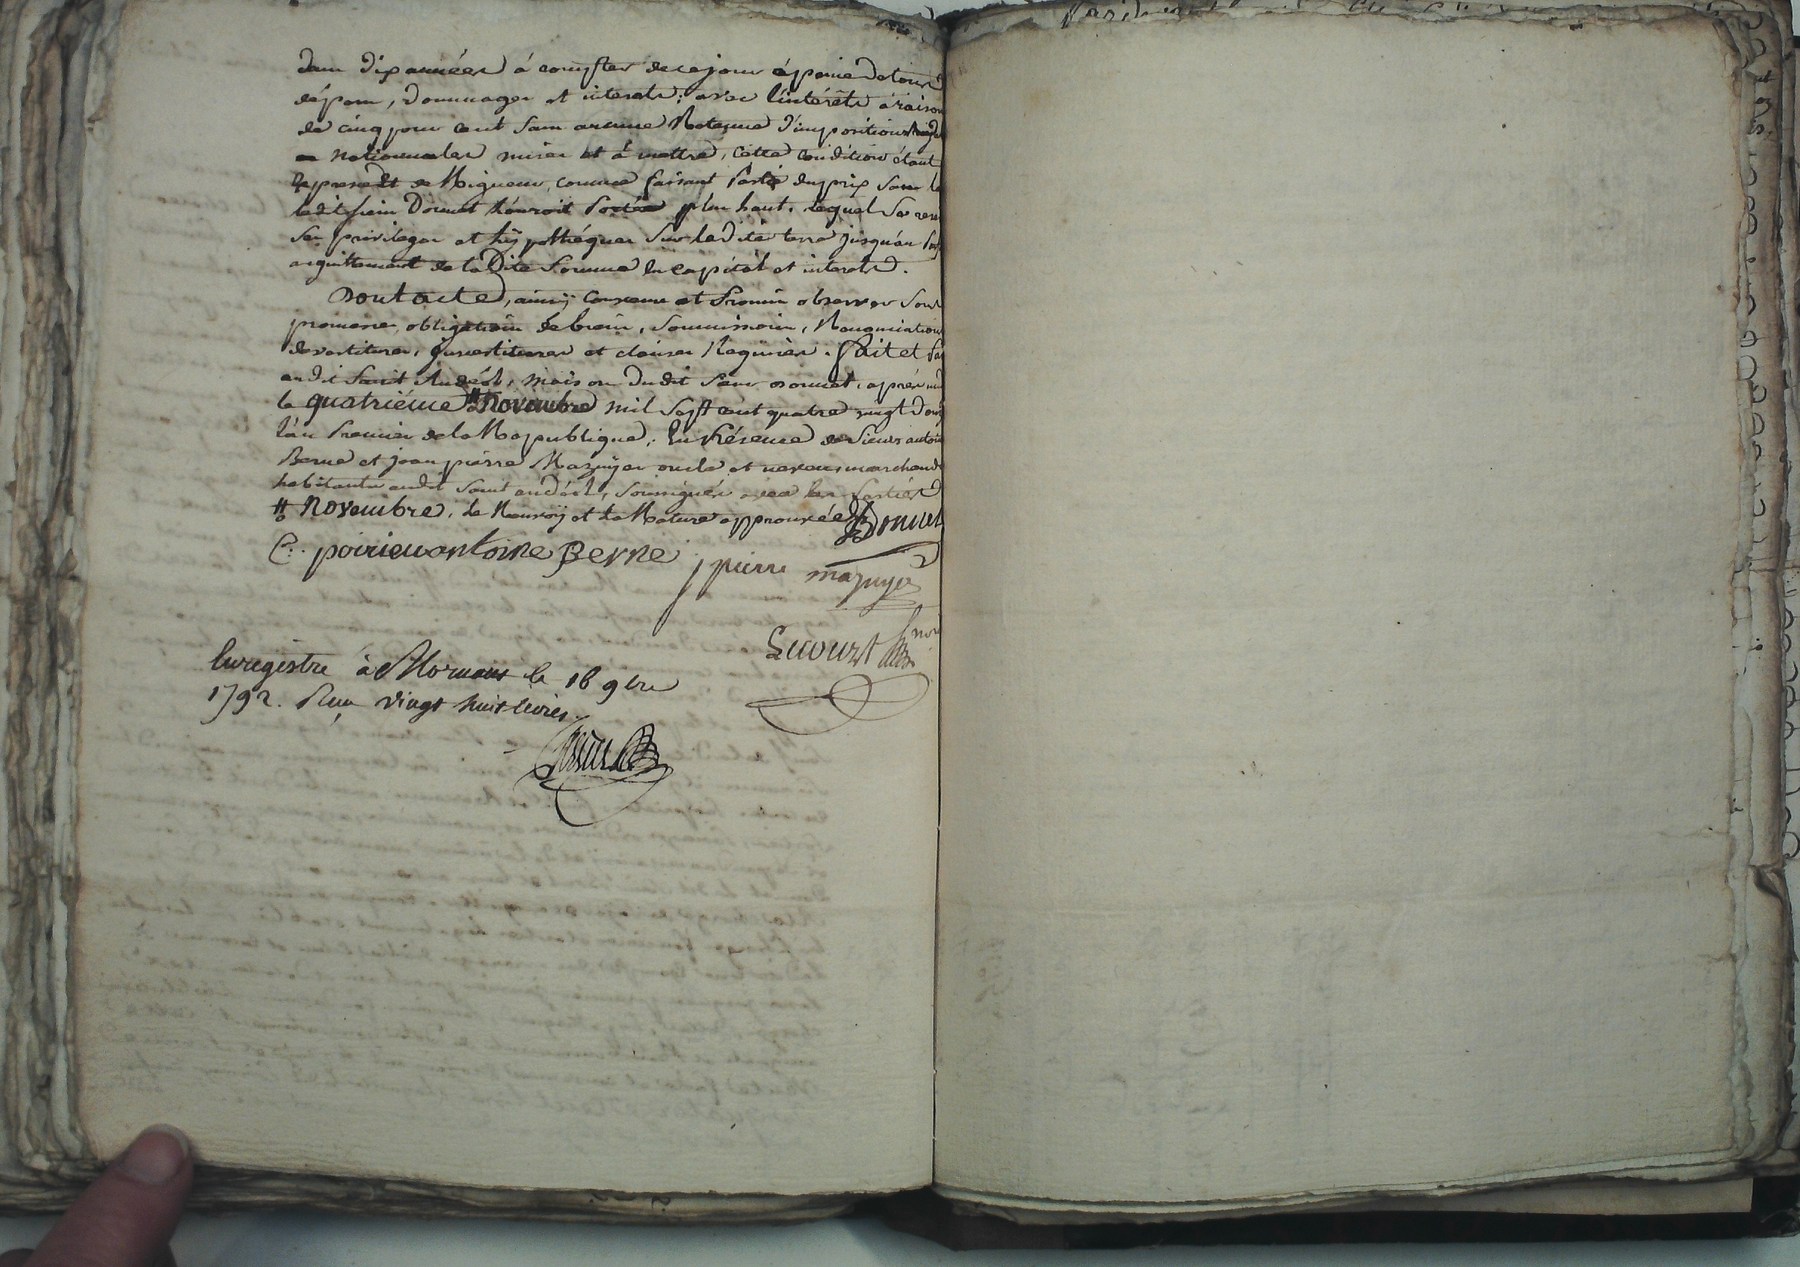 dans dix années à compter de ce jour à peine de tous
dépens, dommages et interets; avec l'intérêts à raison
de cinq pour cent sans aucune Retenue d'impositions
nationnales mises et à mettre, cette condition étant
de Rigueur, comme faisant partie du prix sans la
ledit sieur Donnet l'auroit porté plus haut, lequel se rese
ses privileges et hÿpothéques sur ladite terre jusqu'au
acquittement de ladite somme en capital et interets.
Dont acte, ainsÿ convenu et promis observer sous
promesse, obligation de biens, soumissions, Renonciations
devestitures, investitures et clauses Requises. fait et
audit Saint Andéol, maison dudit sieur Donnet, après
le quatriéme # novembre mil sept cent quatre vingt douz
l'an premier de la République; En présence de sieurs antoine
Berne et jean pierre Mazuyer oncle et neveu, marchands
habitants audit saint andéol, soussignés avec les parties
# novembre, le Renvoÿ et la Rature approuvées Donnet
C.. poirieu antoine Berne j pierre mazuyer
Lecourt nore
Enregistré à Mornant le 18 9bre
1792. Reçu vingt huit livres.